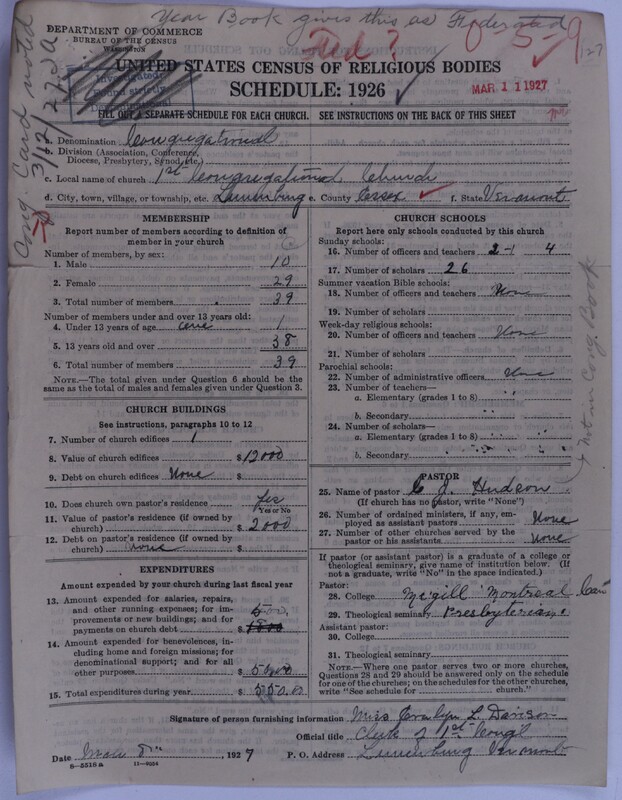 Year Book gives this as Federated
DEPARTMENT OF COMMERCE
BUREAU OF THE CENSUS
WASHINGTON
Fed ?
5-9
127
UNITED STATES CENSUS OF RELIGIOUS BODIES
SCHEDULE: 1926
MAR 11 1927
Investigated
Found strictly
Denominational
Cong. Card noted
3/12/27
FILL OUT A SEPARATE SCHEDULE FOR EACH CHURCH. SEE INSTRUCTIONS ON THE BACK OF THIS SHEET
a. Denomination Congregational
b. Division (Association, Conference, Diocese, Presbytery, Synod, etc.)
c. Local name of church 1st Congregational Church
d. City, town, village, or township, etc. Lunenburg e. County Essex f. State Vermont
MEMBERSHIP
Report number of members according to definition of
member in your church
Number of members, by sex:
1. Male 10
2. Female 29
3. Total number of members 39
Number of members under and over 13 years old:
4. Under 13 years of age one 1
5. 13 years old and over 38
6. Total number of members 39
NOTE.—The total given under Question 6 should be
the same as the total of males and females given under Question 3.
CHURCH BUILDINGS
See instructions, paragraphs 10 to 12
7. Number of church edifices 1
8. Value of church edifices $12000
9. Debt on church edifices None $
10. Does church own pastor's residence Yes
Yes or No
11. Value of pastor's residence (if owned by
church) $2000
12. Debt on pastor's residence (if owned by
church) None $
EXPENDITURES
Amount expended by your church during last fiscal year
13. Amount expended for salaries, repairs,
and other running expenses; for im-
provements or new buildings; and for
payments on church debt $
14. Amount expended for benevolences, in-
cluding home and foreign missions; for
denominational support; and for all
other purposes $
15. Total expenditures during year $
CHURCH SCHOOLS
Report here only schools conducted by this church
Sunday schools:
16. Number of officers and teachers 4
17. Number of scholars 26
Summer vacation Bible schools:
18. Number of officers and teachers None
19. Number of scholars
Week-day religious schools:
20. Number of officers and teachers None
21. Number of scholars
Parochial schools:
22. Number of administrative officers None
23. Number of teachers—
a. Elementary (grades 1 to 8)
b. Secondary
24. Number of scholars—
a. Elementary (grades 1 to 8)
b. Secondary
Not in Cong. Book
PASTOR
25. Name of pastor C. J. Hudson
(If church has no pastor, write "None")
26. Number of ordained ministers, if any, em-
ployed as assistant pastors None
27. Number of other churches served by the
pastor or his assistants None
If pastor (or assistant pastor) is a graduate of a college or
theological seminary, give name of institution below. (If
not a graduate, write "No" in the space indicated.)
Pastor:
28. College McGill Montreal Can
29. Theological seminary Presbyterian
Assistant pastor:
30. College
31. Theological seminary
NOTE.—Where one pastor serves two or more churches,
Questions 28 and 29 should be answered only on the schedule
for one of the churches; on the schedules for the other churches,
write "See schedule for church."
Signature of person furnishing information Miss Evalyn L. Davison
Official title Clerk of 1st Cong'l
Date 1927 P. O. Address Lunenburg Vermont
8-5518a 11-9224